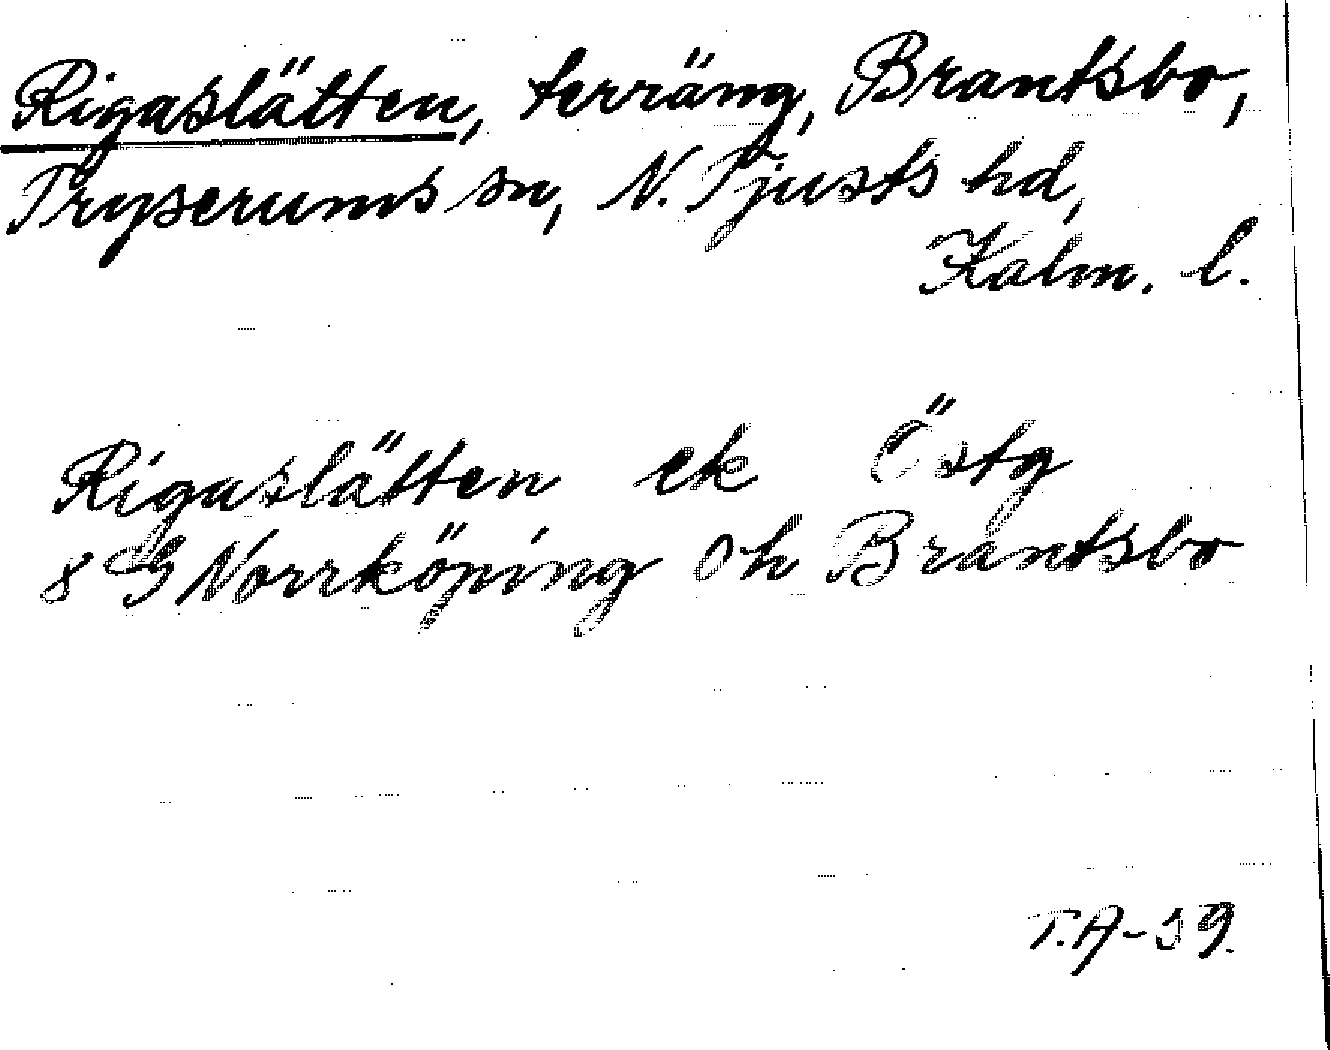 Rigaslätten, terräng, Brantsbo,
Tryserums sn, N. Tjusts hd,
Kalm. l.
Rigaslätten ek Östg
8 G Norrköping Oh Brantsbo
T.A-39.